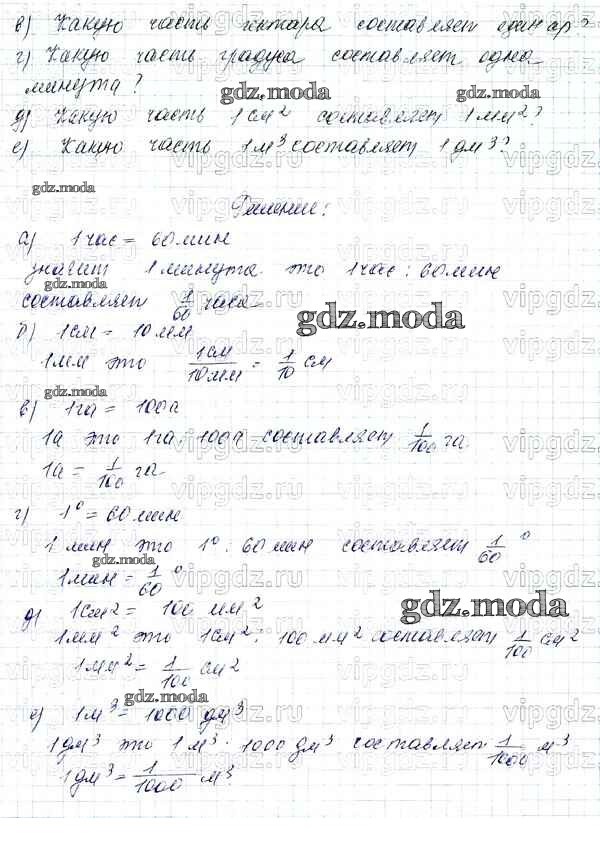 в) Какую часть гектара составляет один ар?
г) Какую часть градуса составляет одна
минута?
gdz.moda gdz.moda
д) Какую часть 1 см² составляет 1 мм²?
е) Какую часть 1 м³ составляет 1 дм³?
gdz.moda
Решение:
а) 1 час = 60 мин
значит 1 минута это 1 час : 60 мин
gdz.moda
составляет 1/60 часа
gdz.moda
б) 1 см = 10 мм
1 мм это 1см/10мм = 1/10 см
gdz.moda
в) 1 га = 100 а
1а это 1 га : 100а составляет 1/100 га.
1а = 1/100 га.
г) 1° = 60 мин
1 мин это 1° : 60 мин составляет 1/60 °
gdz.moda
1 мин = 1/60 °
gdz.moda
д) 1 см² = 100 мм²
1 мм² это 1 см² : 100 мм² составляет 1/100 см²
1 мм² = 1/100 см²
gdz.moda
е) 1 м³ = 1000 дм³
1 дм³ это 1 м³ : 1000 дм³ составляет 1/1000 м³
1 дм³ = 1/1000 м³
vipgdz.ru